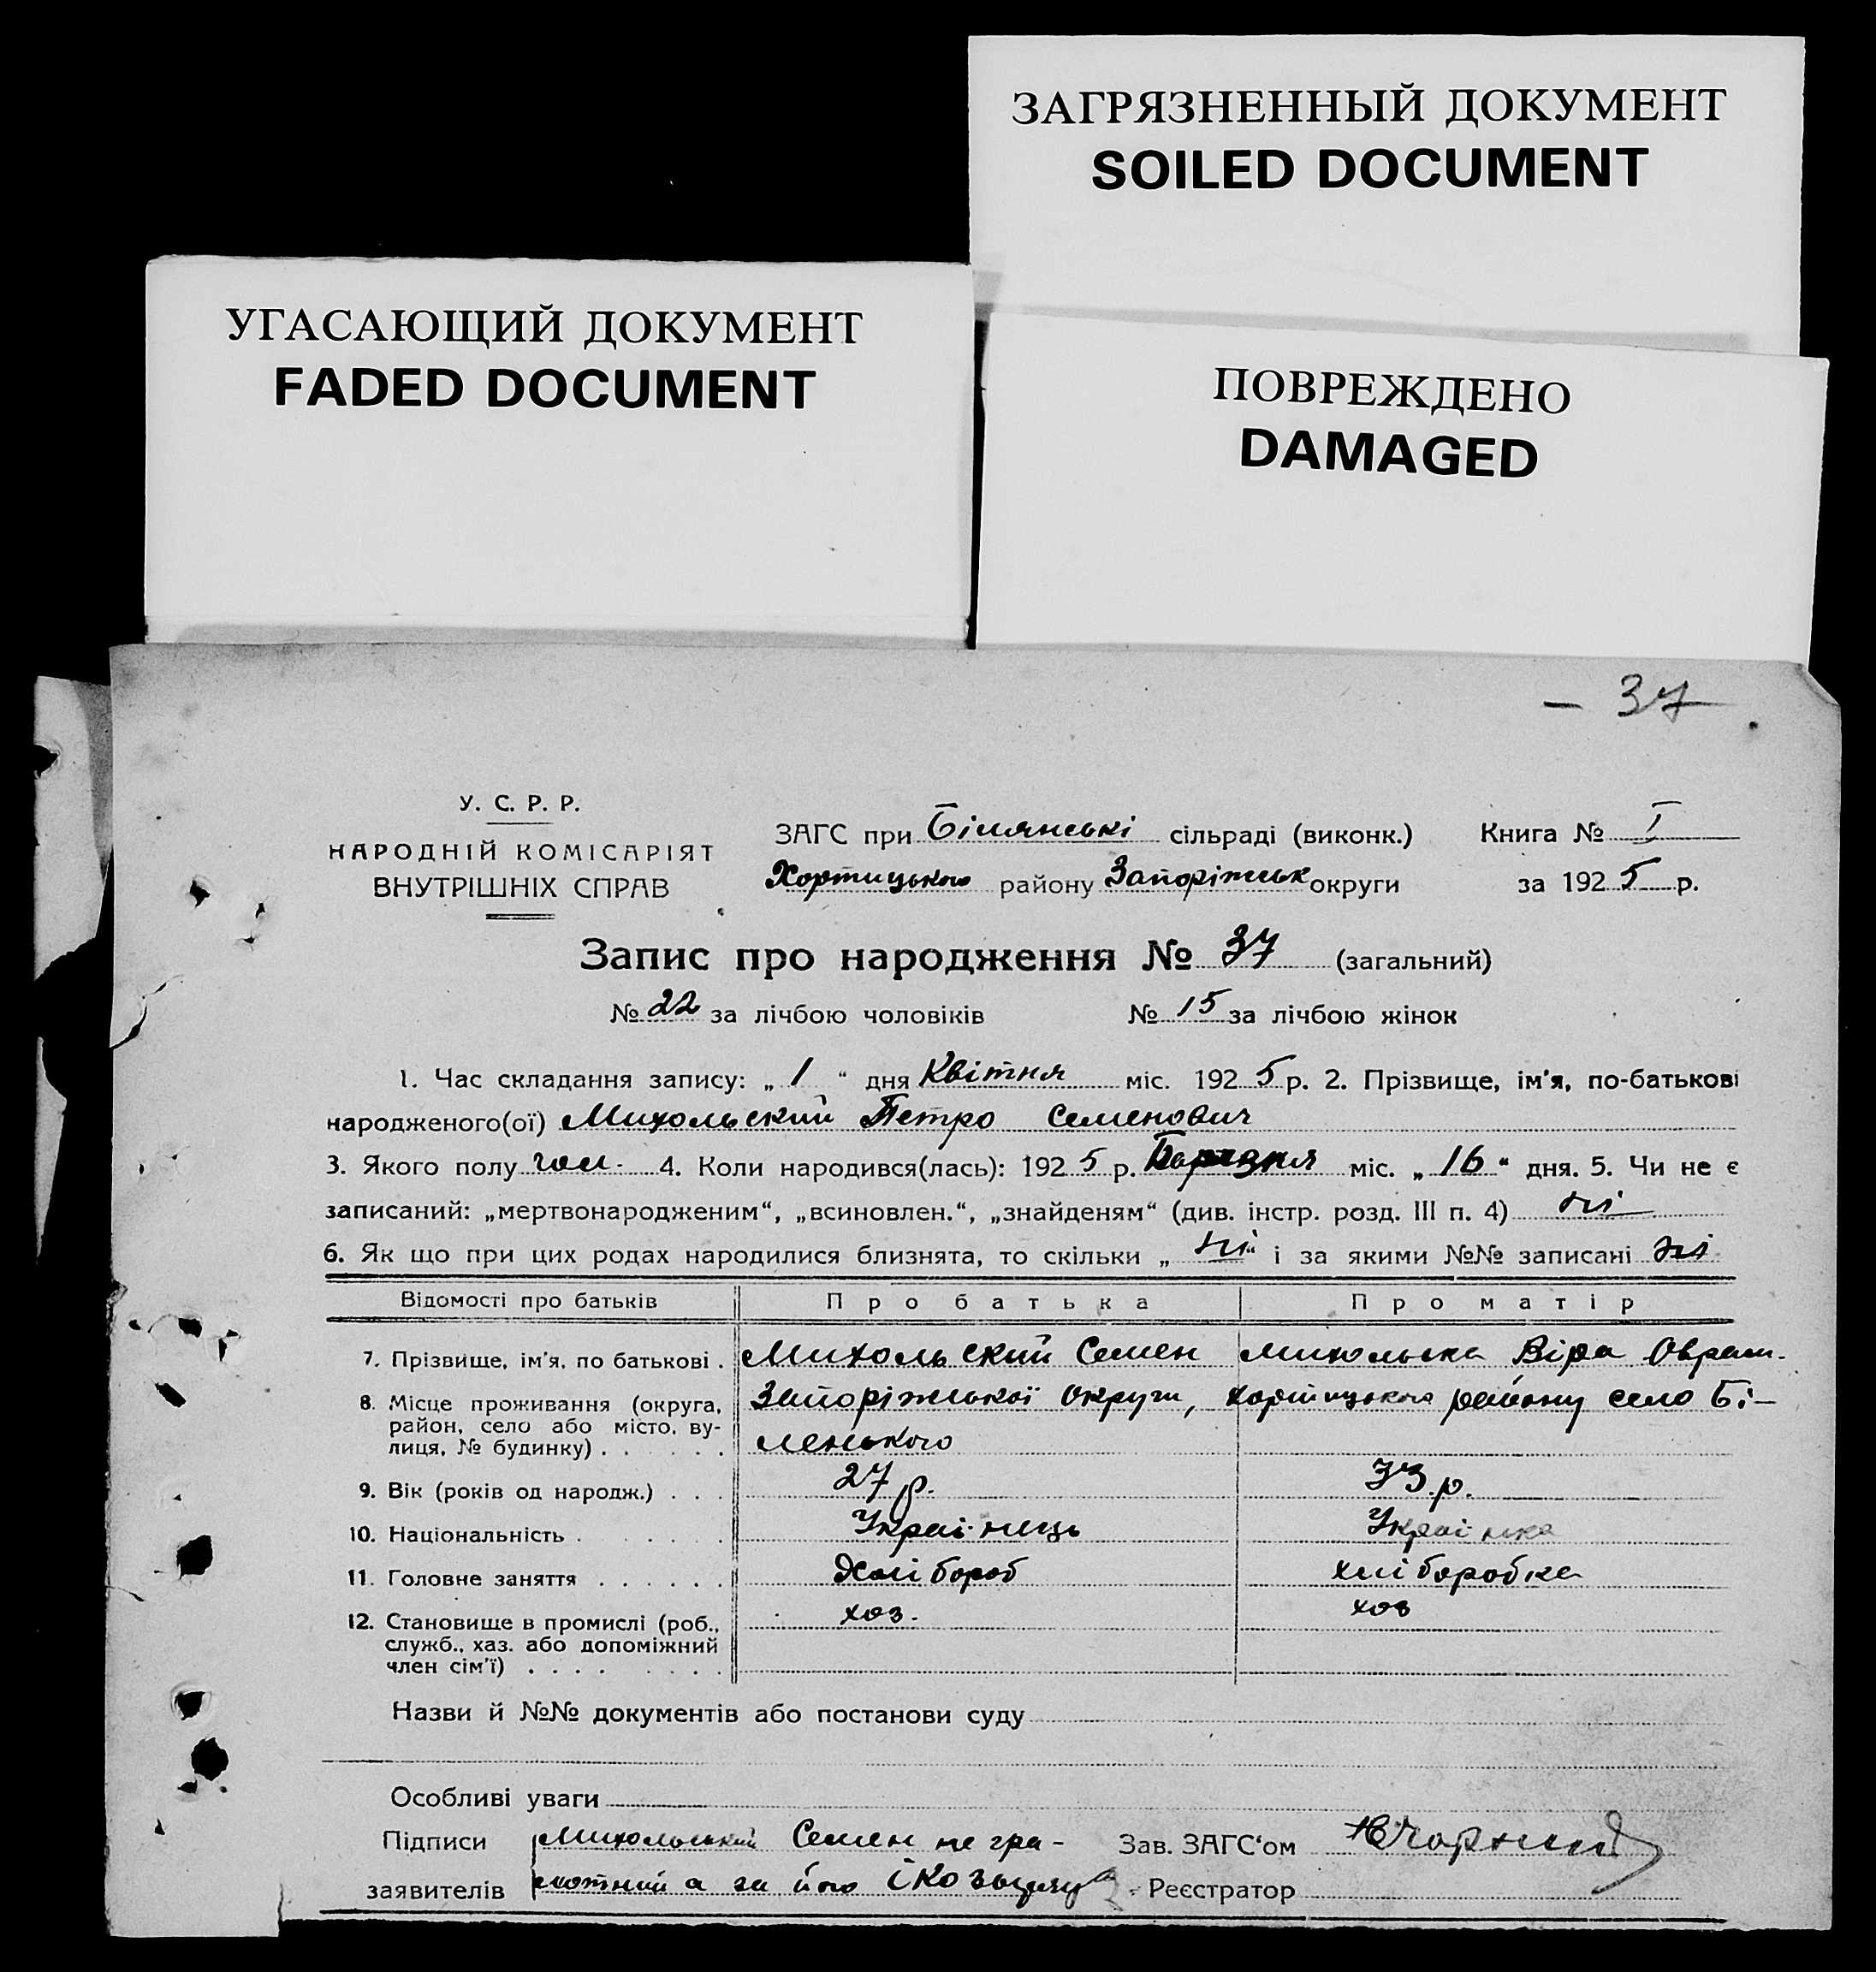 ЗАГРЯЗНЕННЫЙ ДОКУМЕНТ
SOILED DOCUMENT
УГАСАЮЩИЙ ДОКУМЕНТ
FADED DOCUMENT
ПОВРЕЖДЕНО
DAMAGED
– 37
У. С. Р. Р.
НАРОДНІЙ КОМІСАРІЯТ
ВНУТРІШНІХ СПРАВ
ЗАГС при Білянські сільраді (виконк.) Книга № I
Хортицького району Запоріжськ округи за 1925 р.
Запис про народження № 37 (загальний)
№ 22 за лічбою чоловіків № 15 за лічбою жінок
1. Час складання запису: „ 1 “ дня Квітня міс. 1925 р. 2. Прізвище, ім'я, по-батькові
народженого(ої) Михольский Петро Семенович
3. Якого полу чол. 4. Коли народився(лась): 1925 р. міс. „ 16 “ дня. 5. Чи не є
записаний: „мертвонародженим“, „всиновлен.“, „знайденям“ (див. інстр. розд. III п. 4) ні
6. Як що при цих родах народилися близнята, то скільки „ ні “ і за якими №№ записані ні
Відомості про батьків Про батька Про матір
7. Прізвище, ім'я, по батькові . Михольский Семен Михольска Віра Оврам.
8. Місце проживання (округа, Запоріжської округи, Хортицького району село Бі-
район, село або місто, ву-
лиця, № будинку) . . . . . ленького
9. Вік (років од народж.) . . . 27 р. 33 р.
10. Національність . . . . . . Украінець Украінка
11. Головне заняття . . . . . . Хлібороб хліборобка
12. Становище в промислі (роб., хоз. хоз
служб., хаз. або допоміжний
член сім'ї) . . . . . . . .
Назви й №№ документів або постанови суду
Особливі уваги
Підписи Михольський Семен не гра- Зав. ЗАГС'ом Чорний
заявителів мотний а за його Реєстратор